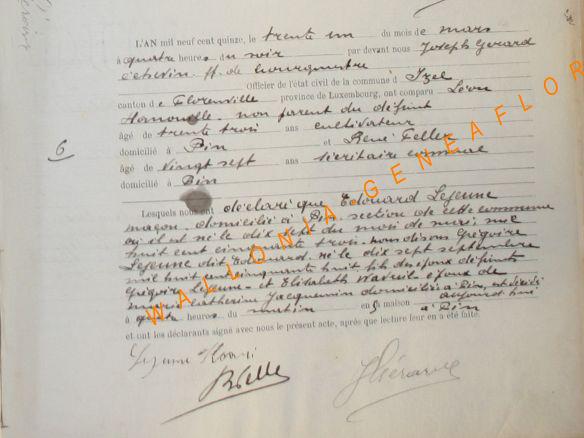 L'AN mil neuf cent quinze, le trente un du mois de mars
à quatre heures du soir par devant nous Joseph Gérard
échevin ff. de bourgmestre
Officier de l'état civil de la commune d'Izel
canton de Florenville province de Luxembourg, ont comparu Léon
non parent du défunt
âgé de trente trois ans cultivateur
domicilié à Pin et René Feller
6
âgé de vingt sept ans secrétaire communal
domicilié à Pin
Lesquels nous ont déclaré que Edouard Lejeune
maçon, domicilié à Pin section de cette commune
où il est né le dix sept du mois de mai, mil
huit cent cinquante trois. nous disons Grégoire
Lejeune dit Edouard, né le dix sept septembre
mil huit cent cinquante huit fils des époux défunts
Grégoire Lejeune et Elisabeth époux de
Marie Catherine Jacquemin domiciliés à Pin, est décédé
aujourd'hui
à quatre heures du matin en sa maison à Pin
et ont les déclarants signé avec nous le présent acte, après que lecture leur en a été faite.
WALLONIA GENEAFLOR